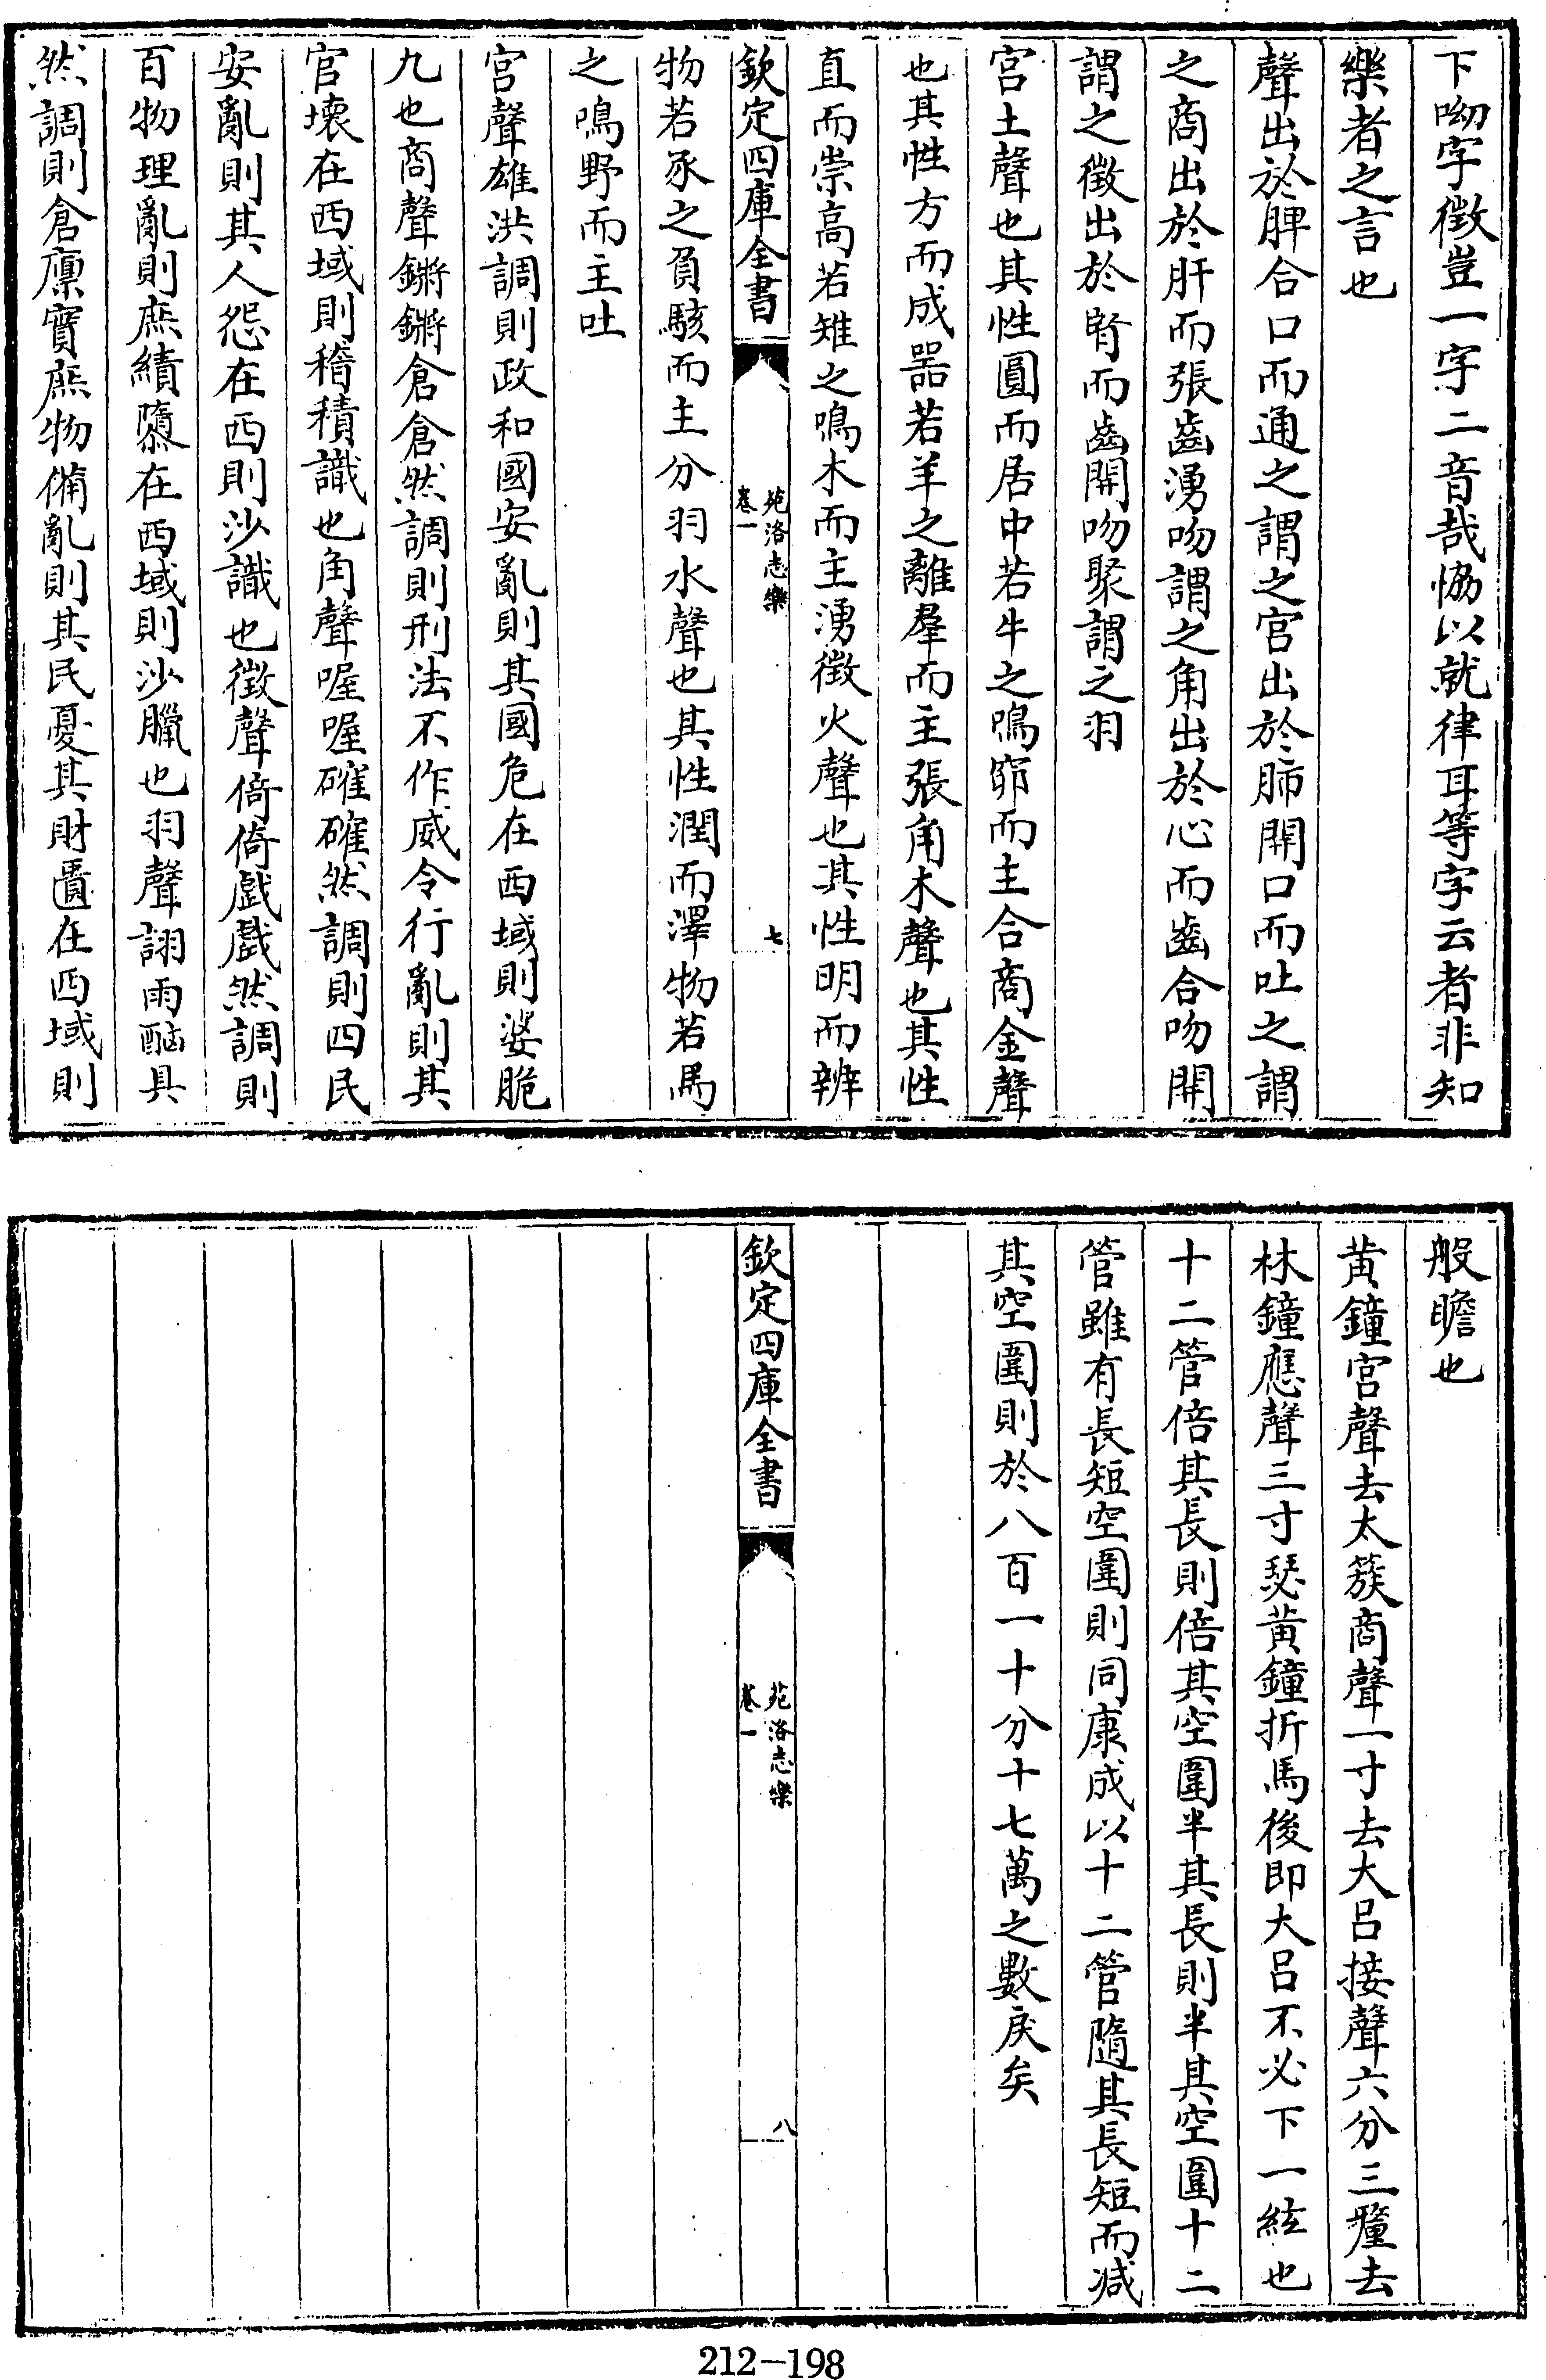 下呦字徴豈一字二音哉恊以就律耳等字云者非知
樂者之言也
聲出於脾合口而通之謂之宫出於肺開口而吐之謂
之商出於肝而張齒湧吻謂之角出於心而齒合吻開
謂之徴出於腎而齒開吻聚謂之羽
宫土聲也其性圓而居中若牛之鳴窌而主合商金聲
也其性方而成噐若羊之離羣而主張角木聲也其性
直而崇高若雉之鳴木而主湧徴火聲也其性明而辨
欽定四庫全書
苑洛志樂
卷一
七
物若豕之負駭而主分羽水聲也其性潤而澤物若馬
之鳴野而主吐
宫聲雄洪調則政和國安亂則其國危在西域則婆脆
九也商聲鏘鏘倉倉然調則刑法不作威令行亂則其
官壊在西域則稽積識也角聲喔喔確確然調則四民
安亂則其人怨在西則沙識也徴聲倚倚戯戯然調則
百物理亂則庶績隳在西域則沙臘也羽聲詡雨酗具
然調則倉廪實庶物備亂則其民憂其財匱在西域則
般瞻也
黄鐘宫聲去太簇商聲一寸去大吕接聲六分三釐去
林鐘應聲三寸瑟黄鐘折馬後即大吕不必下一絃也
十二管倍其長則倍其空圍半其長則半其空圍十二
管雖有長短空圍則同康成以十二管隨其長短而減
其空圍則於八百一十分十七萬之數戾矣
欽定四庫全書
苑洛志樂
卷一
八
212-198